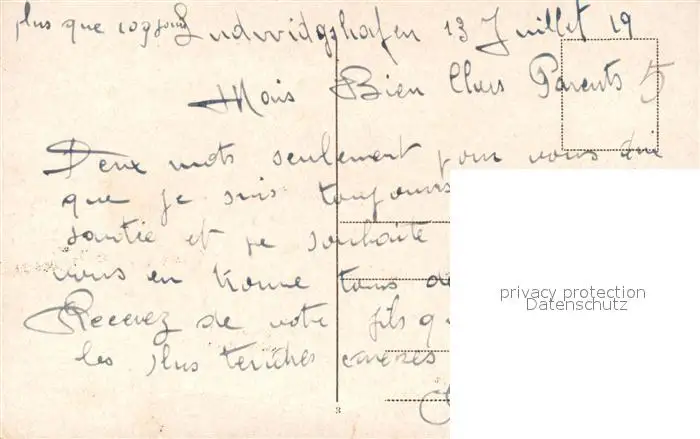 plus que 109 jours Ludwidgshafen 13 Juillet 19
Mais Bien Chers Parents 5
Deux mots seulement pour vous dire
que je suis toujours
santie et je souhaite
vous en trouve tous de
Recevez de votre fils q
les plus tendres caresses
privacy protection
Datenschutz
3